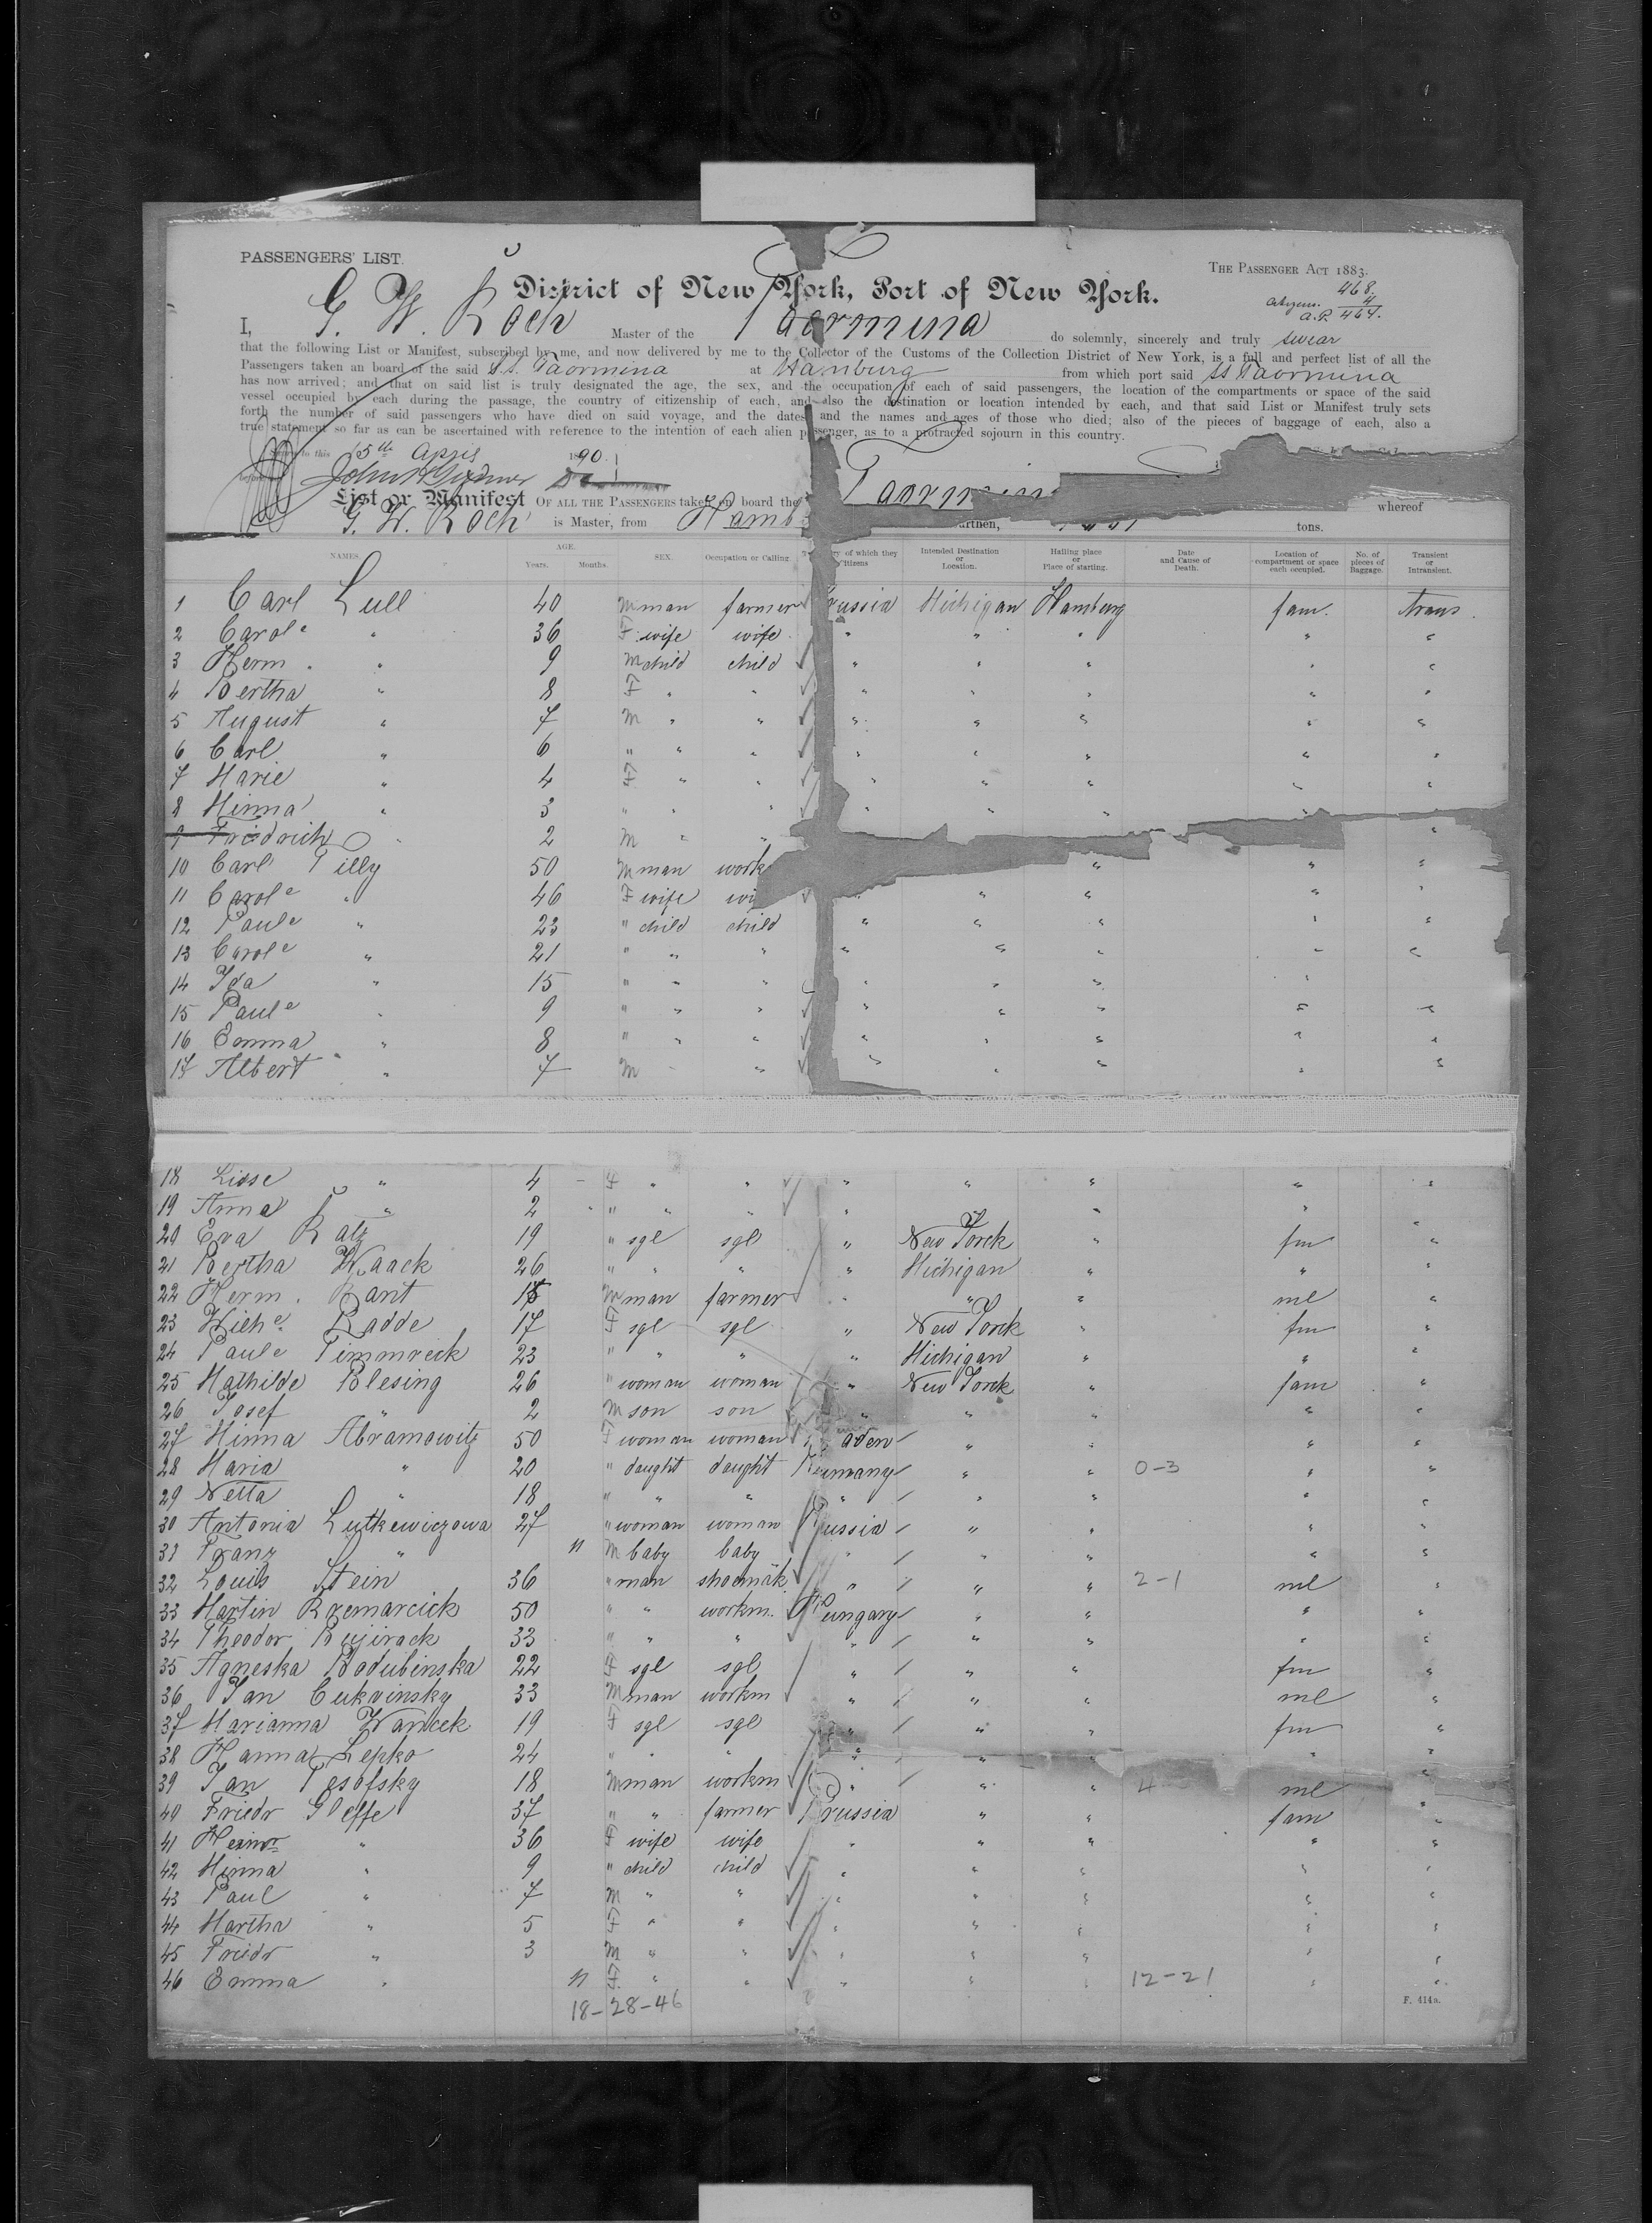 PASSENGERS' LIST.
THE PASSENGER ACT 1883.
District of New York, Port of New York.
468.
citizens. 4
a.P. 464.
I, G. W. Koch Master of the Taormina do solemnly, sincerely and truly swear
that the following List or Manifest, subscribed by me, and now delivered by me to the Collector of the Customs of the Collection District of New York, is a full and perfect list of all the
Passengers taken an board of the said S.S. Taormina at Hamburg from which port said SS Taormina
has now arrived; and that on said list is truly designated the age, the sex, and the occupation of each of said passengers, the location of the compartments or space of the said
vessel occupied by each during the passage, the country of citizenship of each, and also the destination or location intended by each, and that said List or Manifest truly sets
forth the number of said passengers who have died on said voyage, and the dates and the names and ages of those who died; also of the pieces of baggage of each, also a
true statement so far as can be ascertained with reference to the intention of each alien passenger, as to a protracted sojourn in this country.
to this 15th April 1890.
List or Manifest OF ALL THE PASSENGERS taken on board the Taormina whereof
G. W. Koch is Master, from Hamb arthen, tons.
NAMES. AGE. Years. Months. SEX. Occupation or Calling ry of which they Citizens Intended Destination or Location. Hailing place or Place of starting. Date and Cause of Death. Location of compartment or space each occupied. No. of pieces of Baggage. Transient or Intransient.
1 Carl Lull 40 m man farmer russia Michigan Hamburg fam. trans.
2 Carole " 36 F wife wife " " " " "
3 Herm. " 9 m child child " " " " "
4 Bertha " 8 F " " " " " " "
5 August " 7 m " " " " " " "
6 Carl " 6 " " " " " " " "
7 Marie " 4 F " " " " " " "
8 Minna " 3 " " " " " "
9 Friedrich " 2 m " " "
10 Carl Tilly 50 m man work " " "
11 Carole " 46 F wife wi " " " " "
12 Paule " 23 " child child " " " " "
13 Carole " 21 " " " " " " " "
14 Ida " 15 " " " " " " "
15 Paule " 9 " " " " " " " "
16 Emma " 8 " " " " " " " "
17 Albert " 7 m " " " " " " "
18 Liese " 4 F " " " " " " "
19 Anna " 2 " " " " " " "
20 Eva Katz 19 " sgl sgl " New Yorck " fm "
21 Bertha Waack 26 " " " " Michigan " " "
22 Herm. Bant m man farmer " " " ml "
23 Wilhe Radde 17 F sgl sgl " New Yorck " fm "
24 Paule Timmreck 23 " " " " Michigan " " "
25 Mathilde Blesing 26 " woman woman " New Yorck " fam "
26 Josef " 2 m son son " " " " "
27 Minna Abramowitz 50 F woman woman aden " " " "
28 Maria " 20 " daught daught Rumany " " 0-3 " "
29 Netta " 18 " " " " " " " "
30 Antonia Lutkewiczowa 27 " woman woman Russia " " " "
31 Franz " 11 m baby baby " " " " "
32 Louis Stein 36 " man shoemak. " " " 2-1 ml "
33 Martin Kremarcick 50 " " workm. Hungary " " " "
34 Theodor Bujirack 33 " " " " " " " "
35 Agneska Bodubinska 22 F sgl sgl " " " fm "
36 Jan Cukvinsky 33 m man workm " " " ml "
37 Marianna Wancek 19 F sgl sgl " " " fm "
38 Hanna Lepko 24 " " " " " " " "
39 Jan Tesofsky 18 m man workm " " " 4 ml "
40 Friedr Gleffe 37 " " farmer Prussia " " fam "
41 Heinr " 36 F wife wife " " " " "
42 Minna " 9 " child child " " " " "
43 Paul " 7 m " " " " " " "
44 Martha " 5 F " " " " " " "
45 Friedr " 3 m " " " " " " "
46 Emma " 11 F " " " " " 12-21 " "
18-28-46
F. 414a.